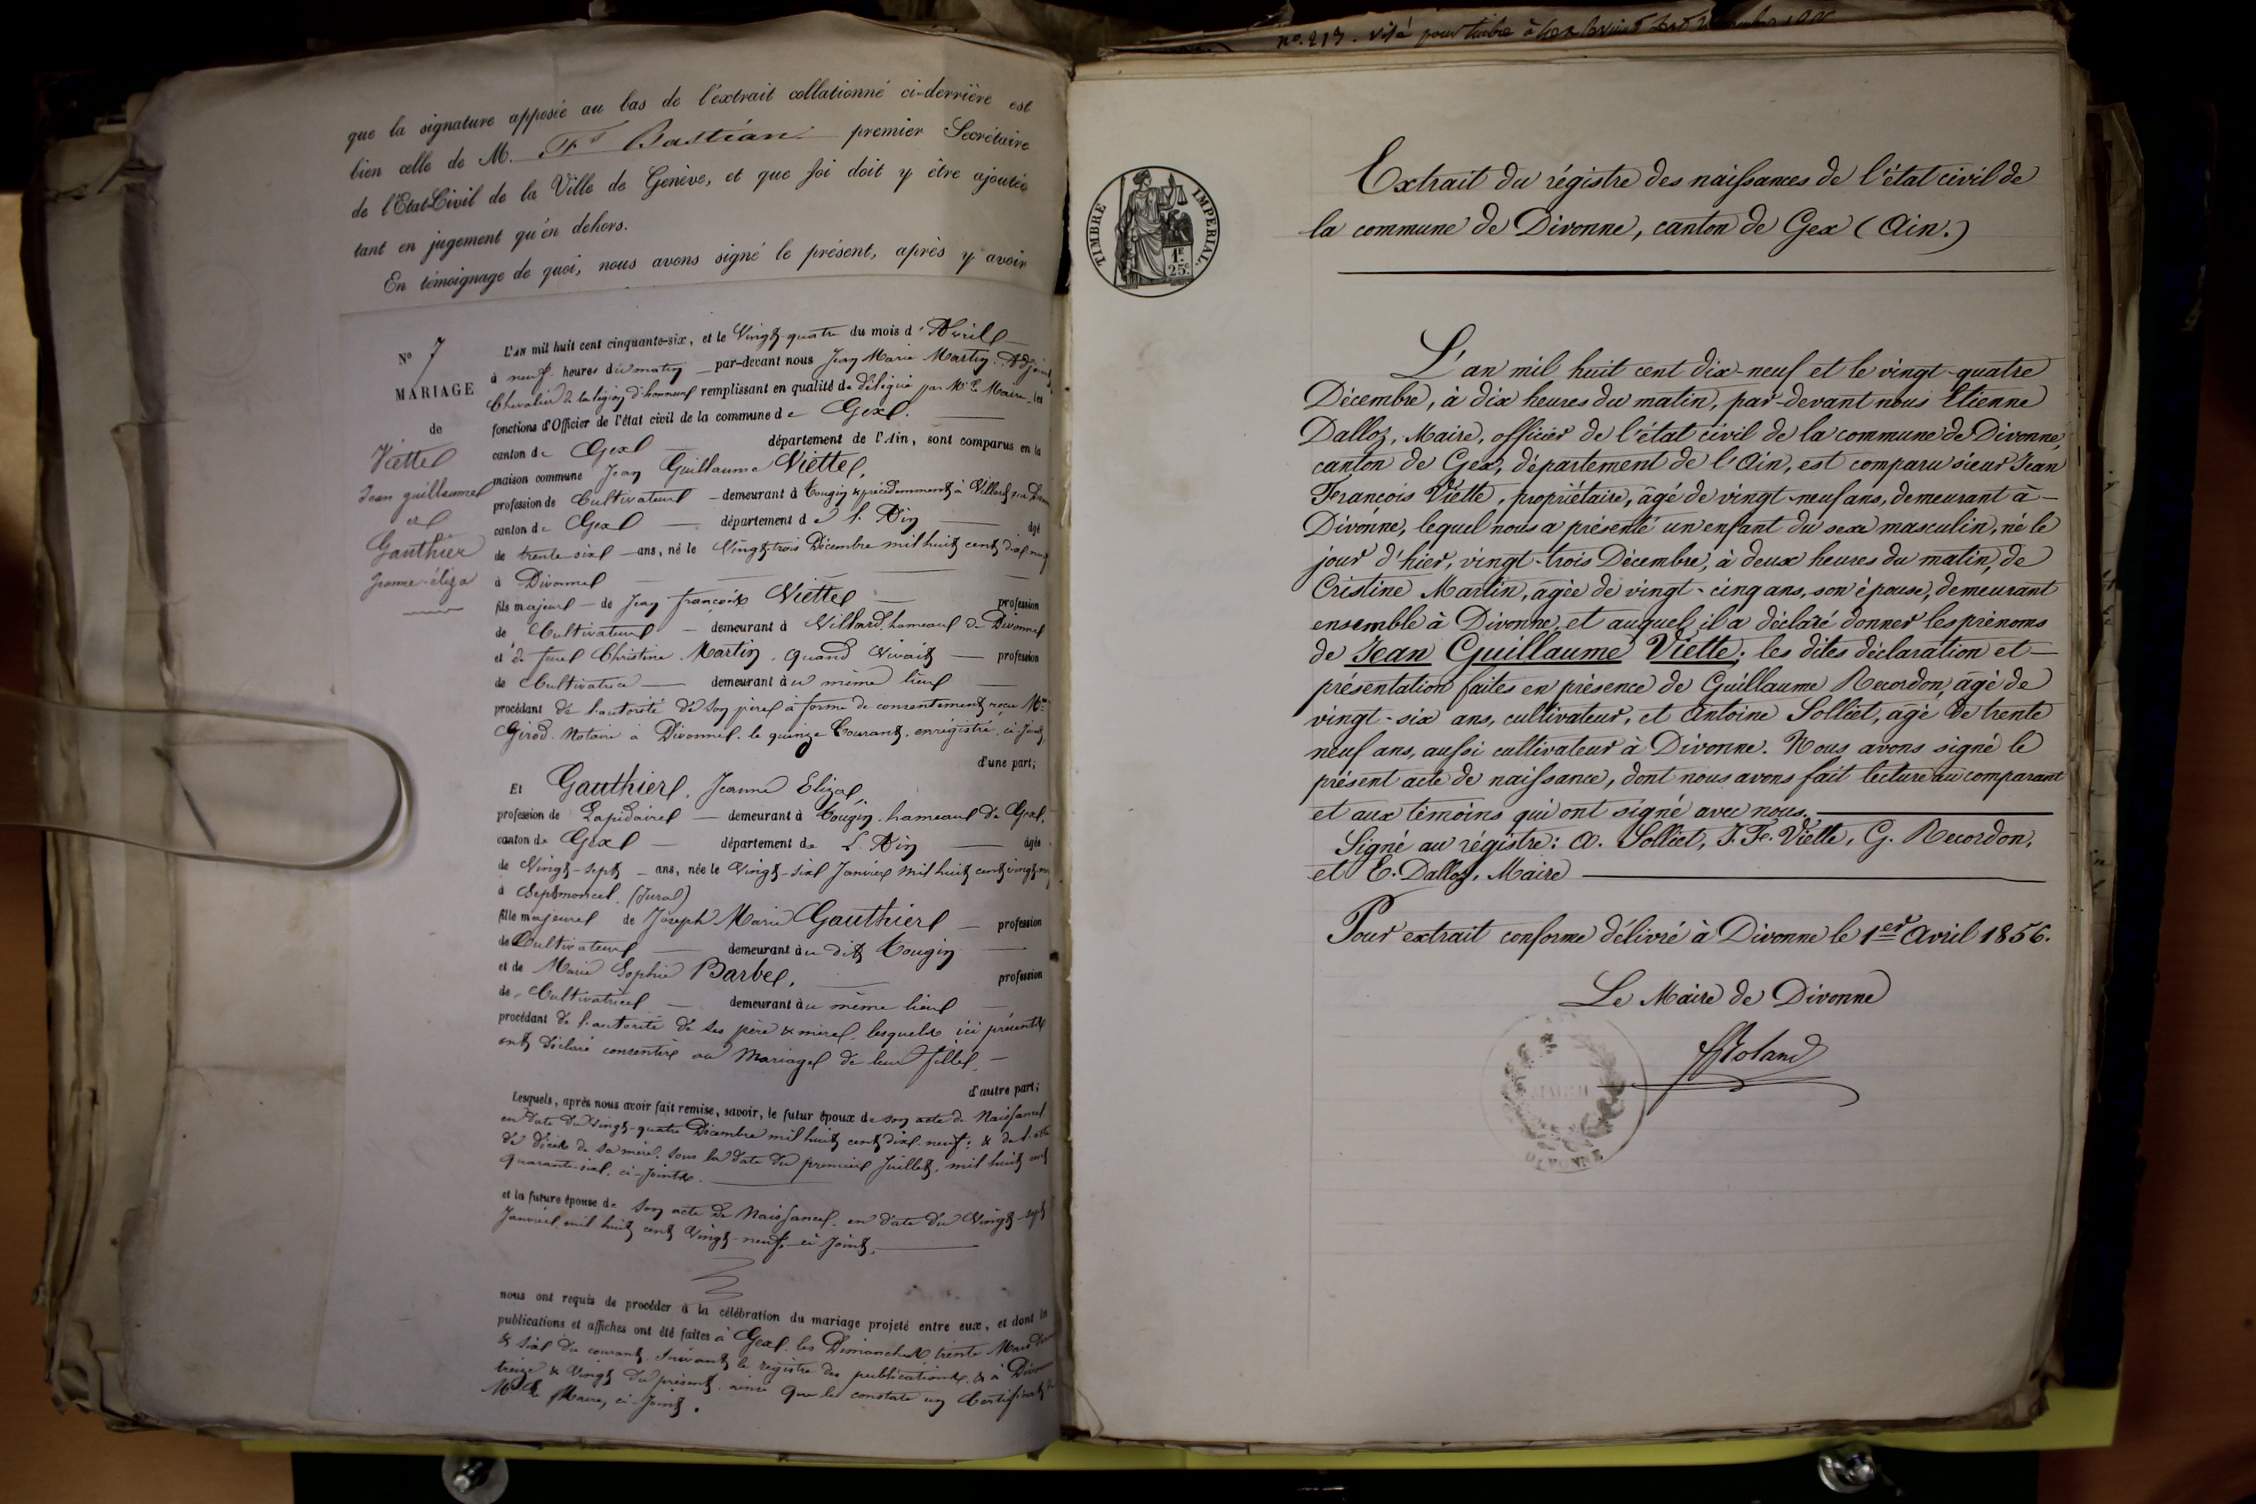 que la signature apposée au bas de l'extrait collationné ci-derrière est
bien celle de M. Fs Bastian premier Secrétaire
de l'Etat-Civil de la Ville de Genève, et que foi doit y être ajoutée
tant en jugement qu'en dehors.
En témoignage de quoi, nous avons signé le présent, après y avoir
No 7
MARIAGE
de
Viette
Jean guillaume
et
Gauthier
Jeanne éliza
L'AN mil huit cent cinquante-six, et le Vingt quatre du mois d'Avril
à neuf heures du matin par-devant nous Jean Marie Martin, Adjoint
Chevalier de la légion d'honneur remplissant en qualité de délégué par Mr le Maire, les
fonctions d'Officier de l'état civil de la commune de Gex.
canton de Gex département de l'Ain, sont comparus en la
maison commune Jean Guillaume Viette,
profession de Cultivateur demeurant à Tougin & précédemment à Villard sur
canton de Gex département de l'Ain âgé
de trente six ans, né le Vingt trois Décembre mil huit cent dix neuf
à Divonne
fils majeur de Jean françois Viette profession
de Cultivateur demeurant à Villard, hameau de Divonne
et de feue Christine Martin, quand vivait profession
de Cultivatrice demeurant au même lieu
procédant de l'autorité de son père à forme de consentement reçu Me
Girod, Notaire à Divonne, le quinze Courant, enregistré, ci-joint,
d'une part;
Et Gauthier, Jeanne Eliza,
profession de Lapidaire demeurant à Tougin, hameau de Gex,
canton de Gex département de L'Ain âgée
de Vingt-sept ans, née le Vingt-six Janvier mil huit cent vingt neuf
à Septmoncel (Jura)
fille majeure de Joseph Marie Gauthier profession
de Cultivateur demeurant au dit Tougin
et de Marie Sophie Barbe, profession
de Cultivatrice demeurant au même lieu
procédant de l'autorité de ses père & mère, lesquels ici présents
ont déclaré consentir au Mariage de leur fille,
d'autre part;
Lesquels, après nous avoir fait remise, savoir, le futur époux de son acte de Naissance
en date du vingt-quatre Décembre mil huit cent dix neuf; & de l'acte
de décès de sa mère, sous la date du premier Juillet, mil huit cent
quarante-six, ci-joints.
et la future épouse de son acte de Naissance, en date du Vingt-sept
Janvier, mil huit cent Vingt-neuf, ci-joint,
nous ont requis de procéder à la célébration du mariage projeté entre eux, et dont les
publications et affiches ont été faites à Gex, les Dimanches trente Mars
& six du courant, suivant le registre des publications, & à Divonne
treize & Vingt du présent, ainsi que le constate un Certificat de
Mr le Maire, ci-joint.
no. 213. visé pour timbre à Gex
TIMBRE IMPERIAL.
1F
25C
Extrait du régistre des naissances de l'état civil de
la commune de Divonne, canton de Gex (Ain.)
L'an mil huit cent dix-neuf et le vingt-quatre
Décembre, à dix heures du matin, par-devant nous Etienne
Dalloz, Maire, officier de l'état civil de la commune de Divonne,
canton de Gex, département de l'Ain, est comparu sieur Jean
François Viette, propriétaire, âgé de vingt-neuf ans, demeurant à
Divonne, lequel nous a présenté un enfant du sexe masculin, né le
jour d'hier, vingt-trois Décembre, à deux heures du matin, de
Cristine Martin, agée de vingt-cinq ans, son épouse, demeurant
ensemble à Divonne, et auquel il a déclaré donner les prénoms
de Jean Guillaume Viette; les dites déclaration et
présentation faites en présence de Guillaume Recordon, âgé de
vingt-six ans, cultivateur, et Antoine Solliet, âgé de trente
neuf ans, aussi cultivateur à Divonne. Nous avons signé le
présent acte de naissance, dont nous avons fait lecture au comparant
et aux témoins qui ont signé avec nous.
Signé au régistre: A. Solliet, J. F. Viette, G. Recordon,
et E. Dalloz, Maire
Pour extrait conforme délivré à Divonne le 1er Avril 1856.
Le Maire de Divonne
Roland
DIVONNE